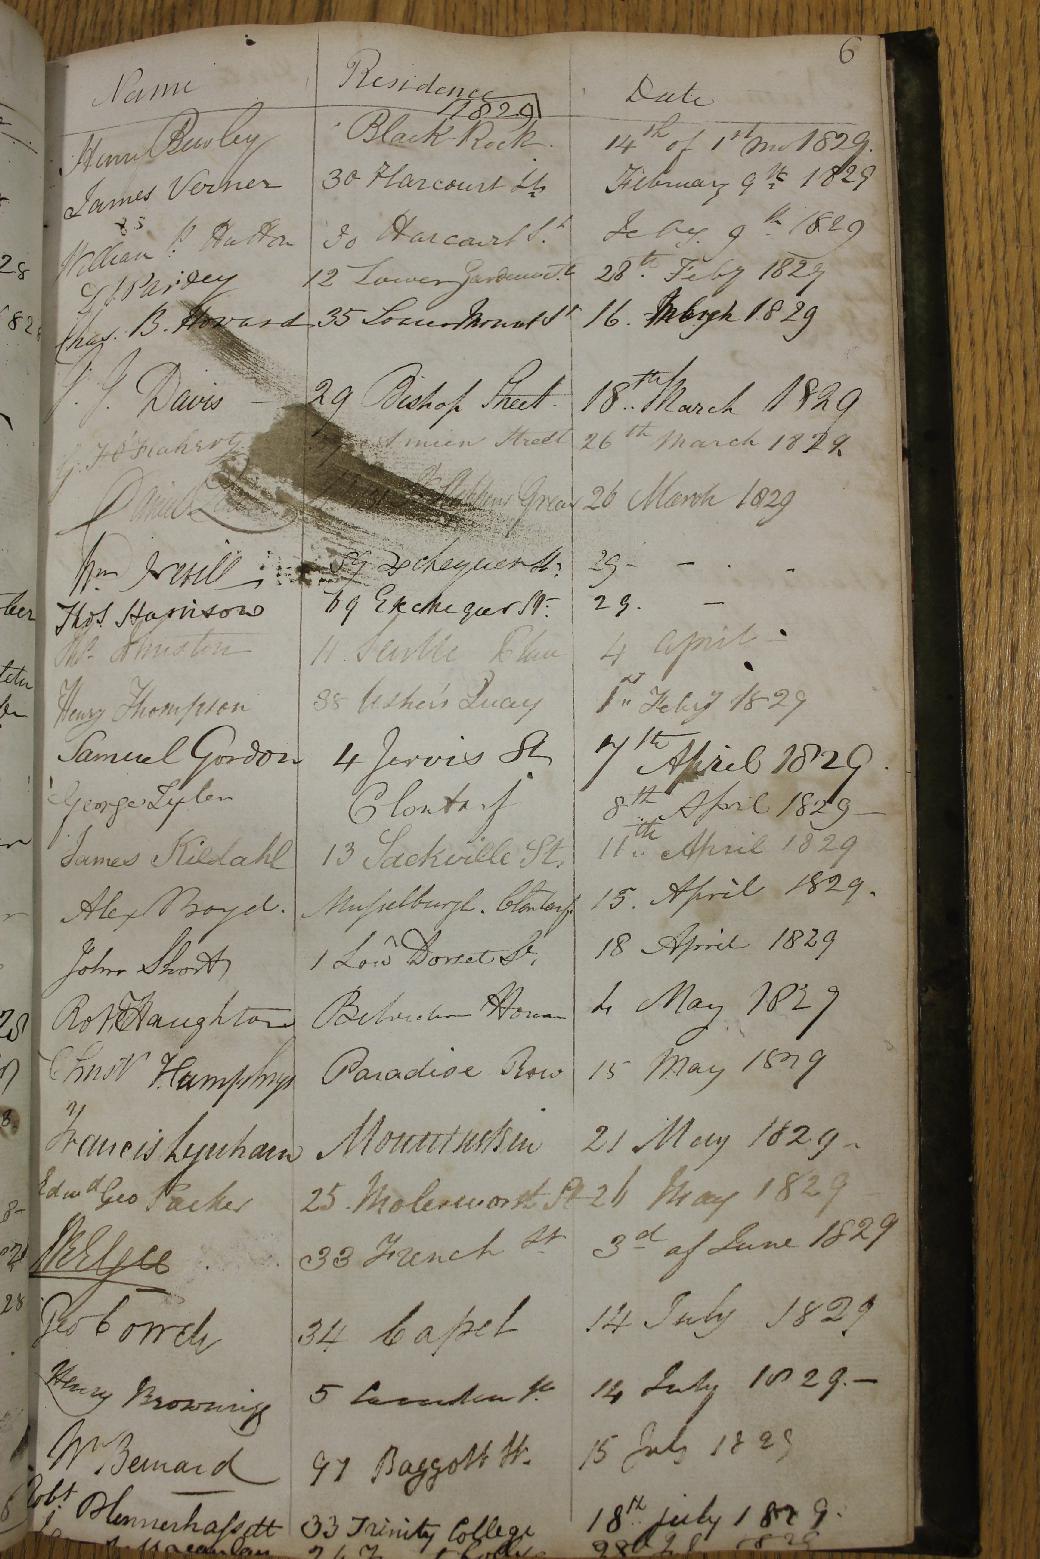 6
Name Residence Date
1829
Henry Bewley Black Rock 14th of 1st mo 1829.
James Verner 30 Harcourt St. February 9th 1829
William Hutton 30 Harcourt St. Feby. 9th 1829
12 Lower Gardiner St 28th Feby 1829
Chas. B. Howard 35 Lower Mount St 16. March 1829
J. J. Davis 29 Bishop Street 18th March 1829
Street 26th March 1829
Daniel Stephens Green 26 March 1829
Wm Nevill 69 Exchequer St. 29 - - - -
Thos Harrison 69 Exchequer St. 29. -
Johnston 11 Seville Place 4 april
Henry Thompson 38 Usher's Quay 1st Feby 1829
Samuel Gordon 4 Jervis St 7th April 1829.
George Tylen Clontarf 8th April 1829
James Kildahl 13 Sackville St. 11th April 1829
Alex Boyd. Musselburgh. Clontarf 15. April 1829.
John Short 1 Low Dorset St. 18 April 1829
Robt Haughton Belvedere House 4 May 1829
Christr Humphrys Paradise Row 15 May 1829
Francis Lynham Mountuskin 21 May 1829.
Edwd Geo Packer 25 Molesworth St 26 May 1829
33 French St 3d of June 1829
Geo 34 Capel 14 July 1829
Henry Browning 5 Camden St. 14 July 1829.
Wm Bernard 97 Baggott St. 15 July 1829
Robt Blennerhassett 33 Trinity College 18th july 1829.